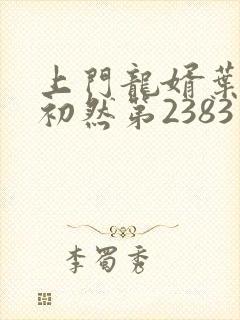 上門龍婿葉
初然第2383
李蜀秀